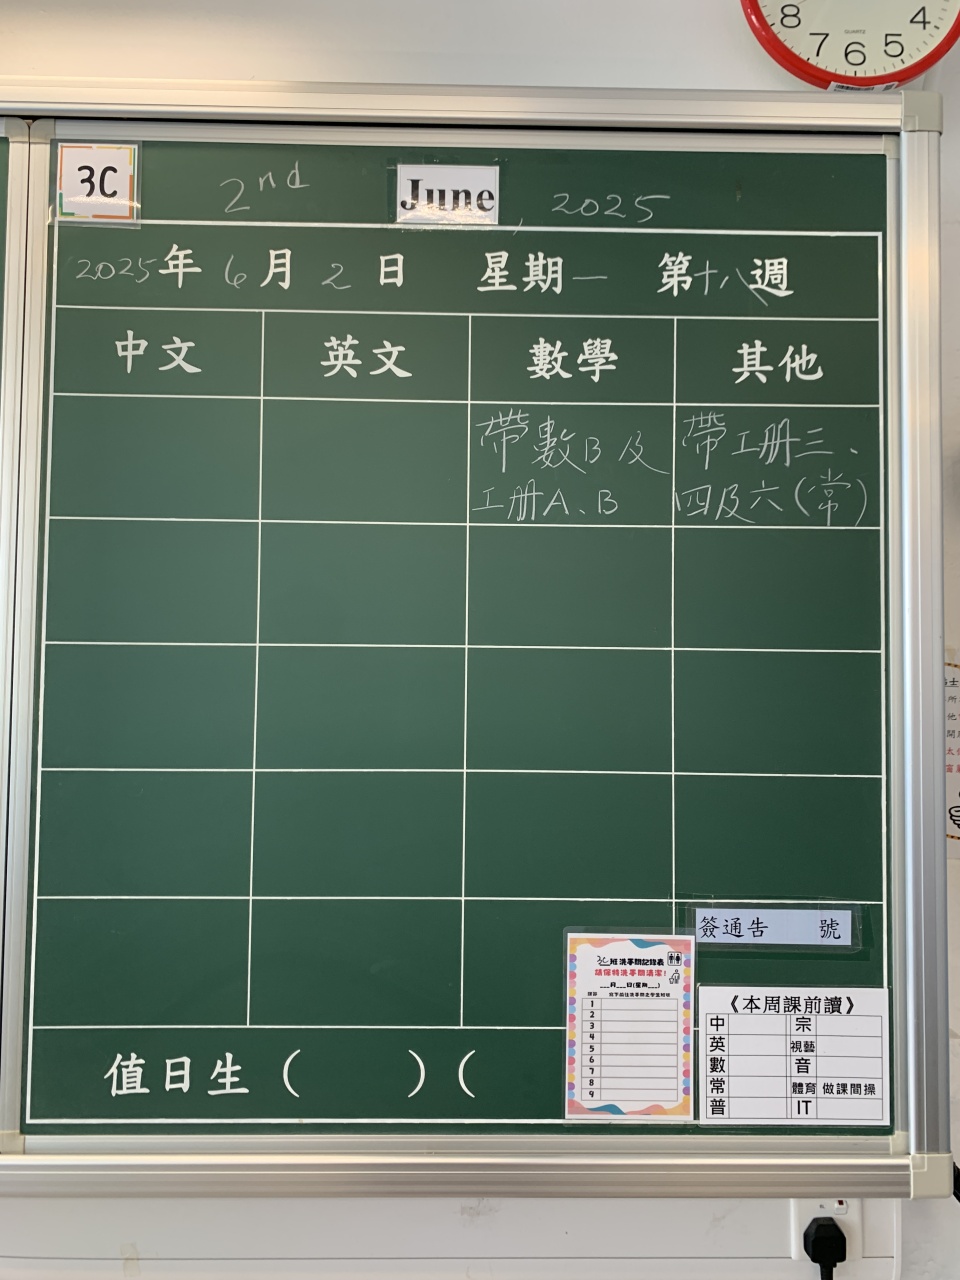 8 7 6 5 4
QUARTZ
3C
2nd June, 2025
2025年6月2日 星期一 第十八週
中文 英文 數學 其他
帶數B及
工册A、B
帶工册三、
四及六(常)
簽通告 號
3C班洗手間記錄表
請保持洗手間清潔!
___月___日(星期___)
1
2
3
4
5
6
7
8
9
《本周課前讀》
中 宗
英 視藝
數 音
常 體育 做課間操
普 IT
值日生( )(